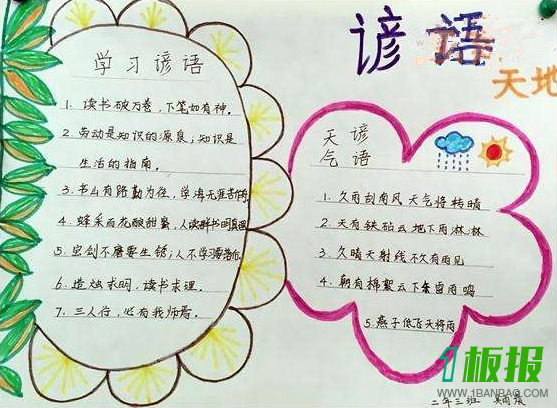 谚语
天地
学习谚语
1. 读书破万卷，下笔如有神。
2. 劳动是知识的源泉；知识是
生活的指南。
3. 书山有路勤为径，学海无涯苦作
4. 蜂采百花酿甜蜜，人读群书明真理
5. 宝剑不磨要生锈；人不学习要落伍
6. 造烛求明，读书求理。
7. 三人行，必有我师焉。
天气
谚语
1. 久雨刮南风 天气将转晴
2. 天有铁砧云 地下雨淋淋
3. 久晴天射线 不久有雨见
4. 朝有棉絮云 下午雷雨鸣
5. 燕子低飞天将雨
二年三班
1板报
WWW.1BANBAO.COM